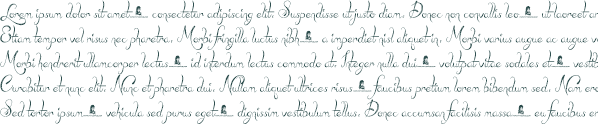 Lorem ipsum dolor sit amet consectetur adipiscing elit. Suspendisse ut justo diam. Donec non convallis leo ut laoreet ar
Etiam tempor vel risus nec pharetra. Morbi fringilla luctus nibh a imperdiet nisl aliquet in. Morbi varius augue ac augue v
Morbi hendrerit ullamcorper lectus id interdum lectus commodo at. Integer nulla dui volutpat vitae sodales et vestib
Curabitur et nunc elit. Nunc et pharetra dui. Nullam aliquet ultrices risus faucibus pretium lorem bibendum sed. Nam orn
Sed tortor ipsum vehicula sed purus eget dignissim vestibulum tellus. Donec accumsan facilisis massa eu faucibus er